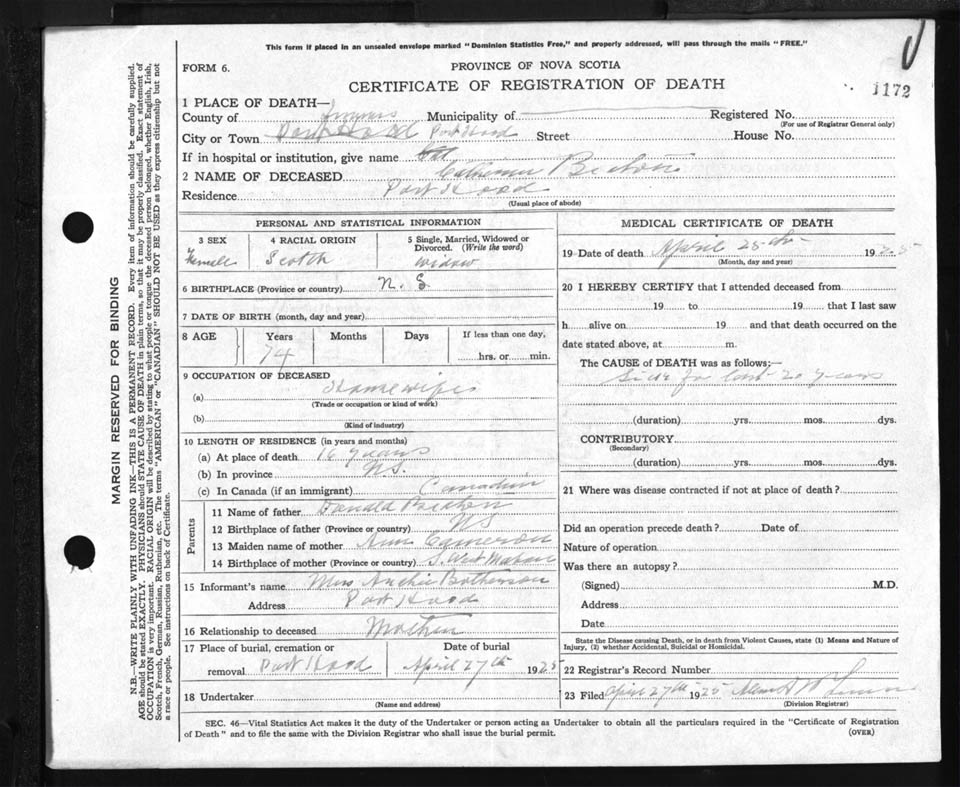 This form if placed in an unsealed envelope marked "Dominion Statistics Free," and properly addressed, will pass through the mails "FREE."
FORM 6.
PROVINCE OF NOVA SCOTIA
CERTIFICATE OF REGISTRATION OF DEATH
1172
1 PLACE OF DEATH—
County of Municipality of Registered No.
(For use of Registrar General only)
City or Town Port Hood Street House No.
If in hospital or institution, give name
2 NAME OF DECEASED Catherine
Residence Port Hood
(Usual place of abode)
PERSONAL AND STATISTICAL INFORMATION
3 SEX Female
4 RACIAL ORIGIN Scotch
5 Single, Married, Widowed or Divorced. (Write the word) widow
6 BIRTHPLACE (Province or country) N. S
7 DATE OF BIRTH (month, day and year)
8 AGE Years Months Days If less than one day,
74 hrs. or min.
9 OCCUPATION OF DECEASED
(a) Housewife
(Trade or occupation or kind of work)
(b)
(Kind of industry)
10 LENGTH OF RESIDENCE (in years and months)
(a) At place of death 16 years
(b) In province N.S.
(c) In Canada (if an immigrant) Canadian
Parents
11 Name of father Donald
12 Birthplace of father (Province or country) NS
13 Maiden name of mother Ann Cameron
14 Birthplace of mother (Province or country) S. West Mabou
15 Informant's name Mrs Archie
Address Port Hood
16 Relationship to deceased Mother
17 Place of burial, cremation or removal Port Hood
Date of burial April 27th 1925
18 Undertaker
(Name and address)
MEDICAL CERTIFICATE OF DEATH
19 Date of death April 25th 1925
(Month, day and year)
20 I HEREBY CERTIFY that I attended deceased from
19 to 19 that I last saw
h alive on 19 and that death occurred on the
date stated above, at m.
The CAUSE of DEATH was as follows:—
Sick for last 20 years
(duration) yrs. mos. dys.
CONTRIBUTORY
(Secondary)
(duration) yrs. mos. dys.
21 Where was disease contracted if not at place of death?
Did an operation precede death? Date of
Nature of operation
Was there an autopsy?
(Signed) M.D.
Address
Date
State the Disease causing Death, or in death from Violent Causes, state (1) Means and Nature of
Injury, (2) whether Accidental, Suicidal or Homicidal.
22 Registrar's Record Number
23 Filed April 27th 1925
(Division Registrar)
SEC. 46—Vital Statistics Act makes it the duty of the Undertaker or person acting as Undertaker to obtain all the particulars required in the "Certificate of Registration
of Death" and to file the same with the Division Registrar who shall issue the burial permit.
(OVER)
MARGIN RESERVED FOR BINDING
N.B.—WRITE PLAINLY WITH UNFADING INK—THIS IS A PERMANENT RECORD. Every item of information should be carefully supplied.
AGE should be stated EXACTLY. PHYSICIANS should STATE CAUSE OF DEATH in plain terms, so that it may be properly classified. Exact statement of
OCCUPATION is very important. RACIAL ORIGIN will be described by stating to what people or tongue the deceased person belonged, whether English, Irish,
Scotch, French, German, Russian, Ruthenian, etc. The terms "AMERICAN" or "CANADIAN" SHOULD NOT BE USED as they express citizenship but not
a race or people. See instructions on back of Certificate.